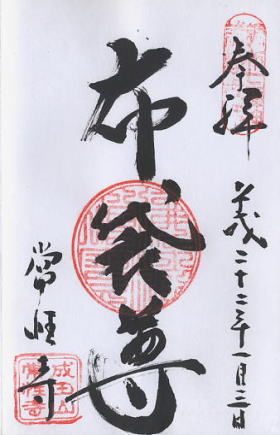 奉拝
平成二十二年一月三日
布袋尊
常性寺